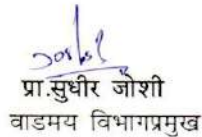 प्रा.सुधीर जोशी
वाडमय विभागप्रमुख